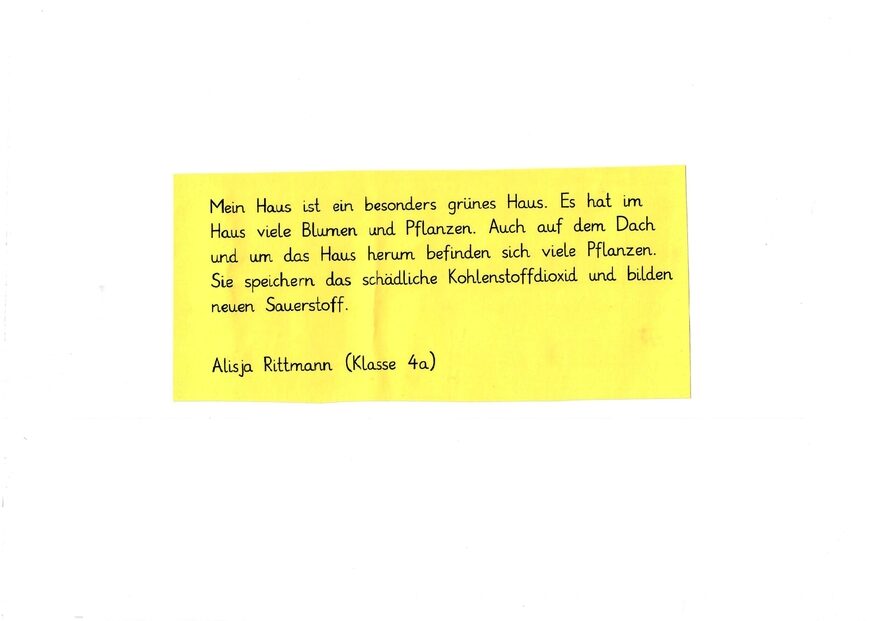 Mein Haus ist ein besonders grünes Haus. Es hat im
Haus viele Blumen und Pflanzen. Auch auf dem Dach
und um das Haus herum befinden sich viele Pflanzen.
Sie speichern das schädliche Kohlenstoffdioxid und bilden
neuen Sauerstoff.
Alisja Rittmann (Klasse 4a)